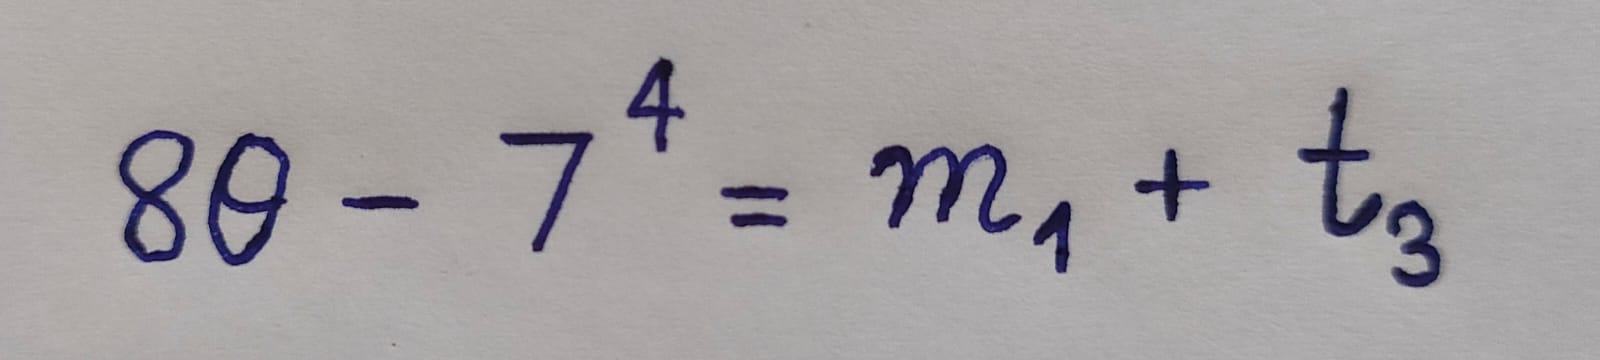 8θ - 7⁴ = m₁ + t₃